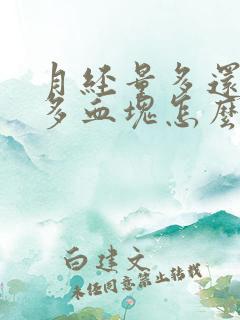 月經量多還
多血塊怎麼
白建文
未经同意禁止转载